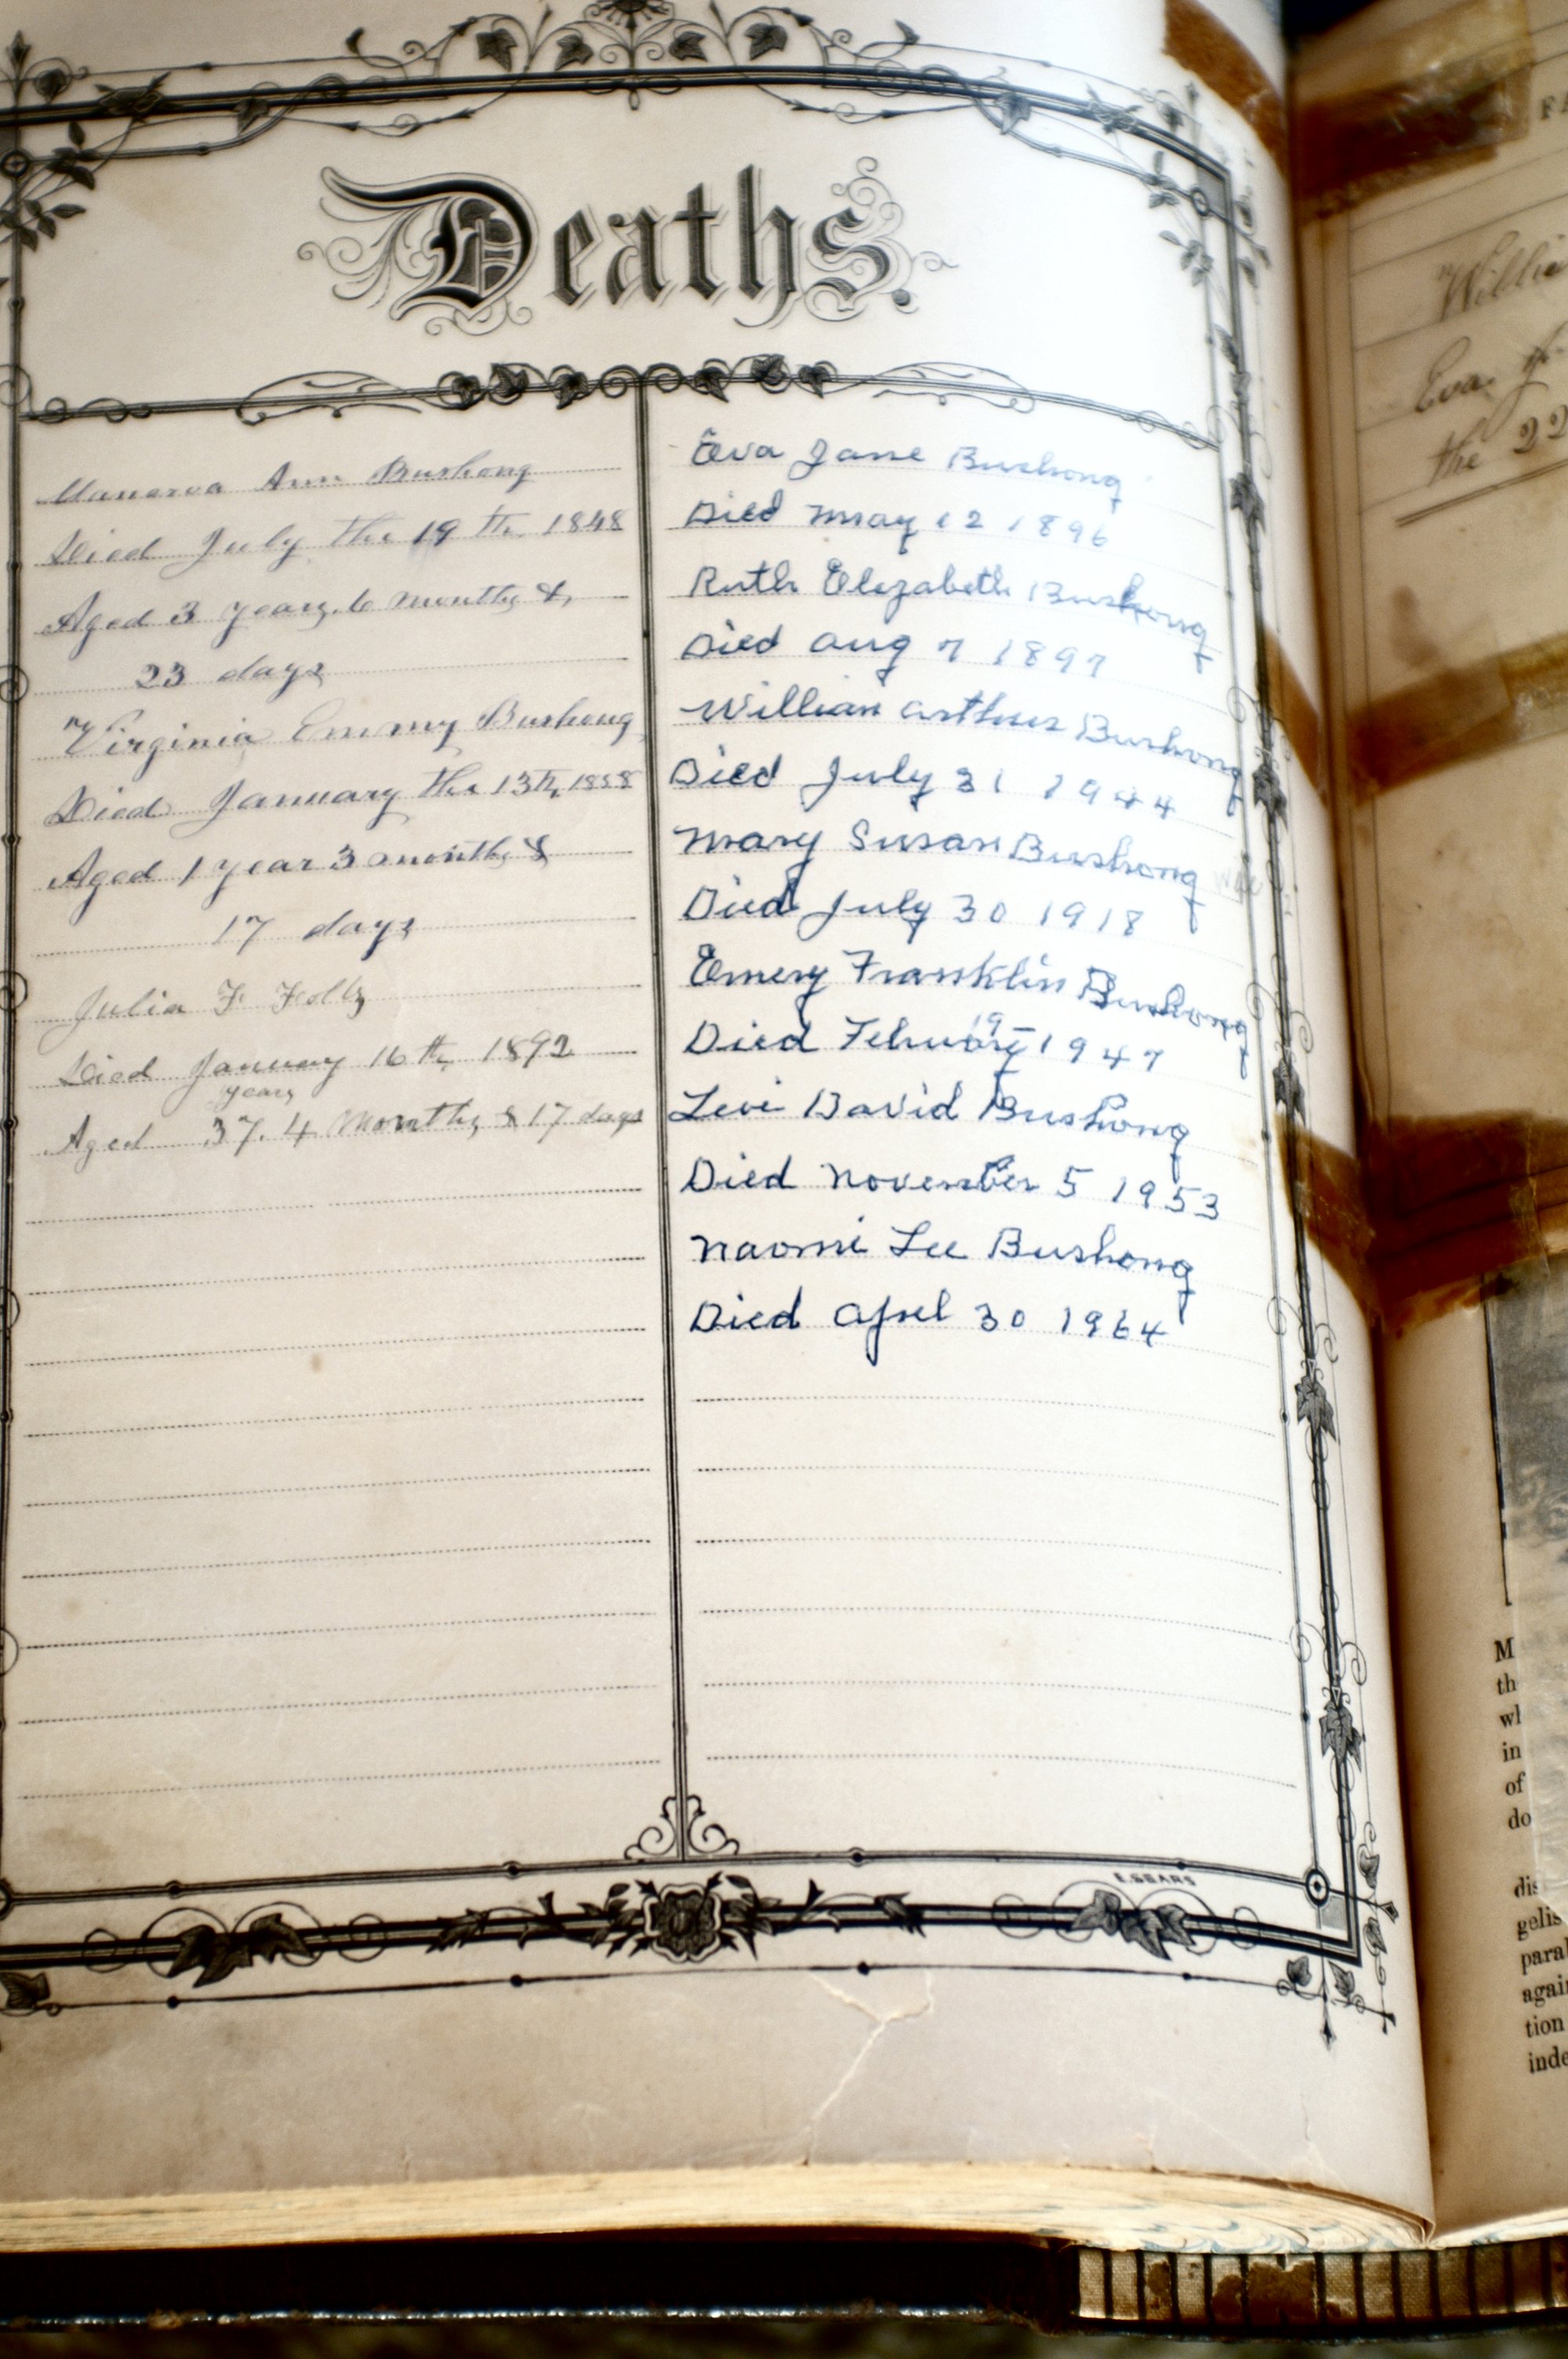 Deaths.
Manerva Ann Bushong
Died July the 19th 1848
Aged 3 years, 6 months &
23 days
Virginia Emmy Bushong
Died January the 13th, 1858
Aged 1 year 3 months &
17 days
Julia F. Foltz
Died January 16th, 1892
years
Aged 37. 4 Months & 17 days
Eva Jane Bushong
Died May 12 1896
Ruth Elezabeth Bushong
Died Aug 7 1897
William Arthur Bushong
Died July 31 1944
Mary Susan Bushong
Died July 30 1918
Emery Franklin Bushong
19
Died Febuary 1947
Levi David Bushong
Died November 5 1953
Naomi Lee Bushong
Died April 30 1964
E. SEARS
Willie
Eva. J.
the 22
M
th
wl
in
of
do
dis
gelis
paral
again
tion
inde